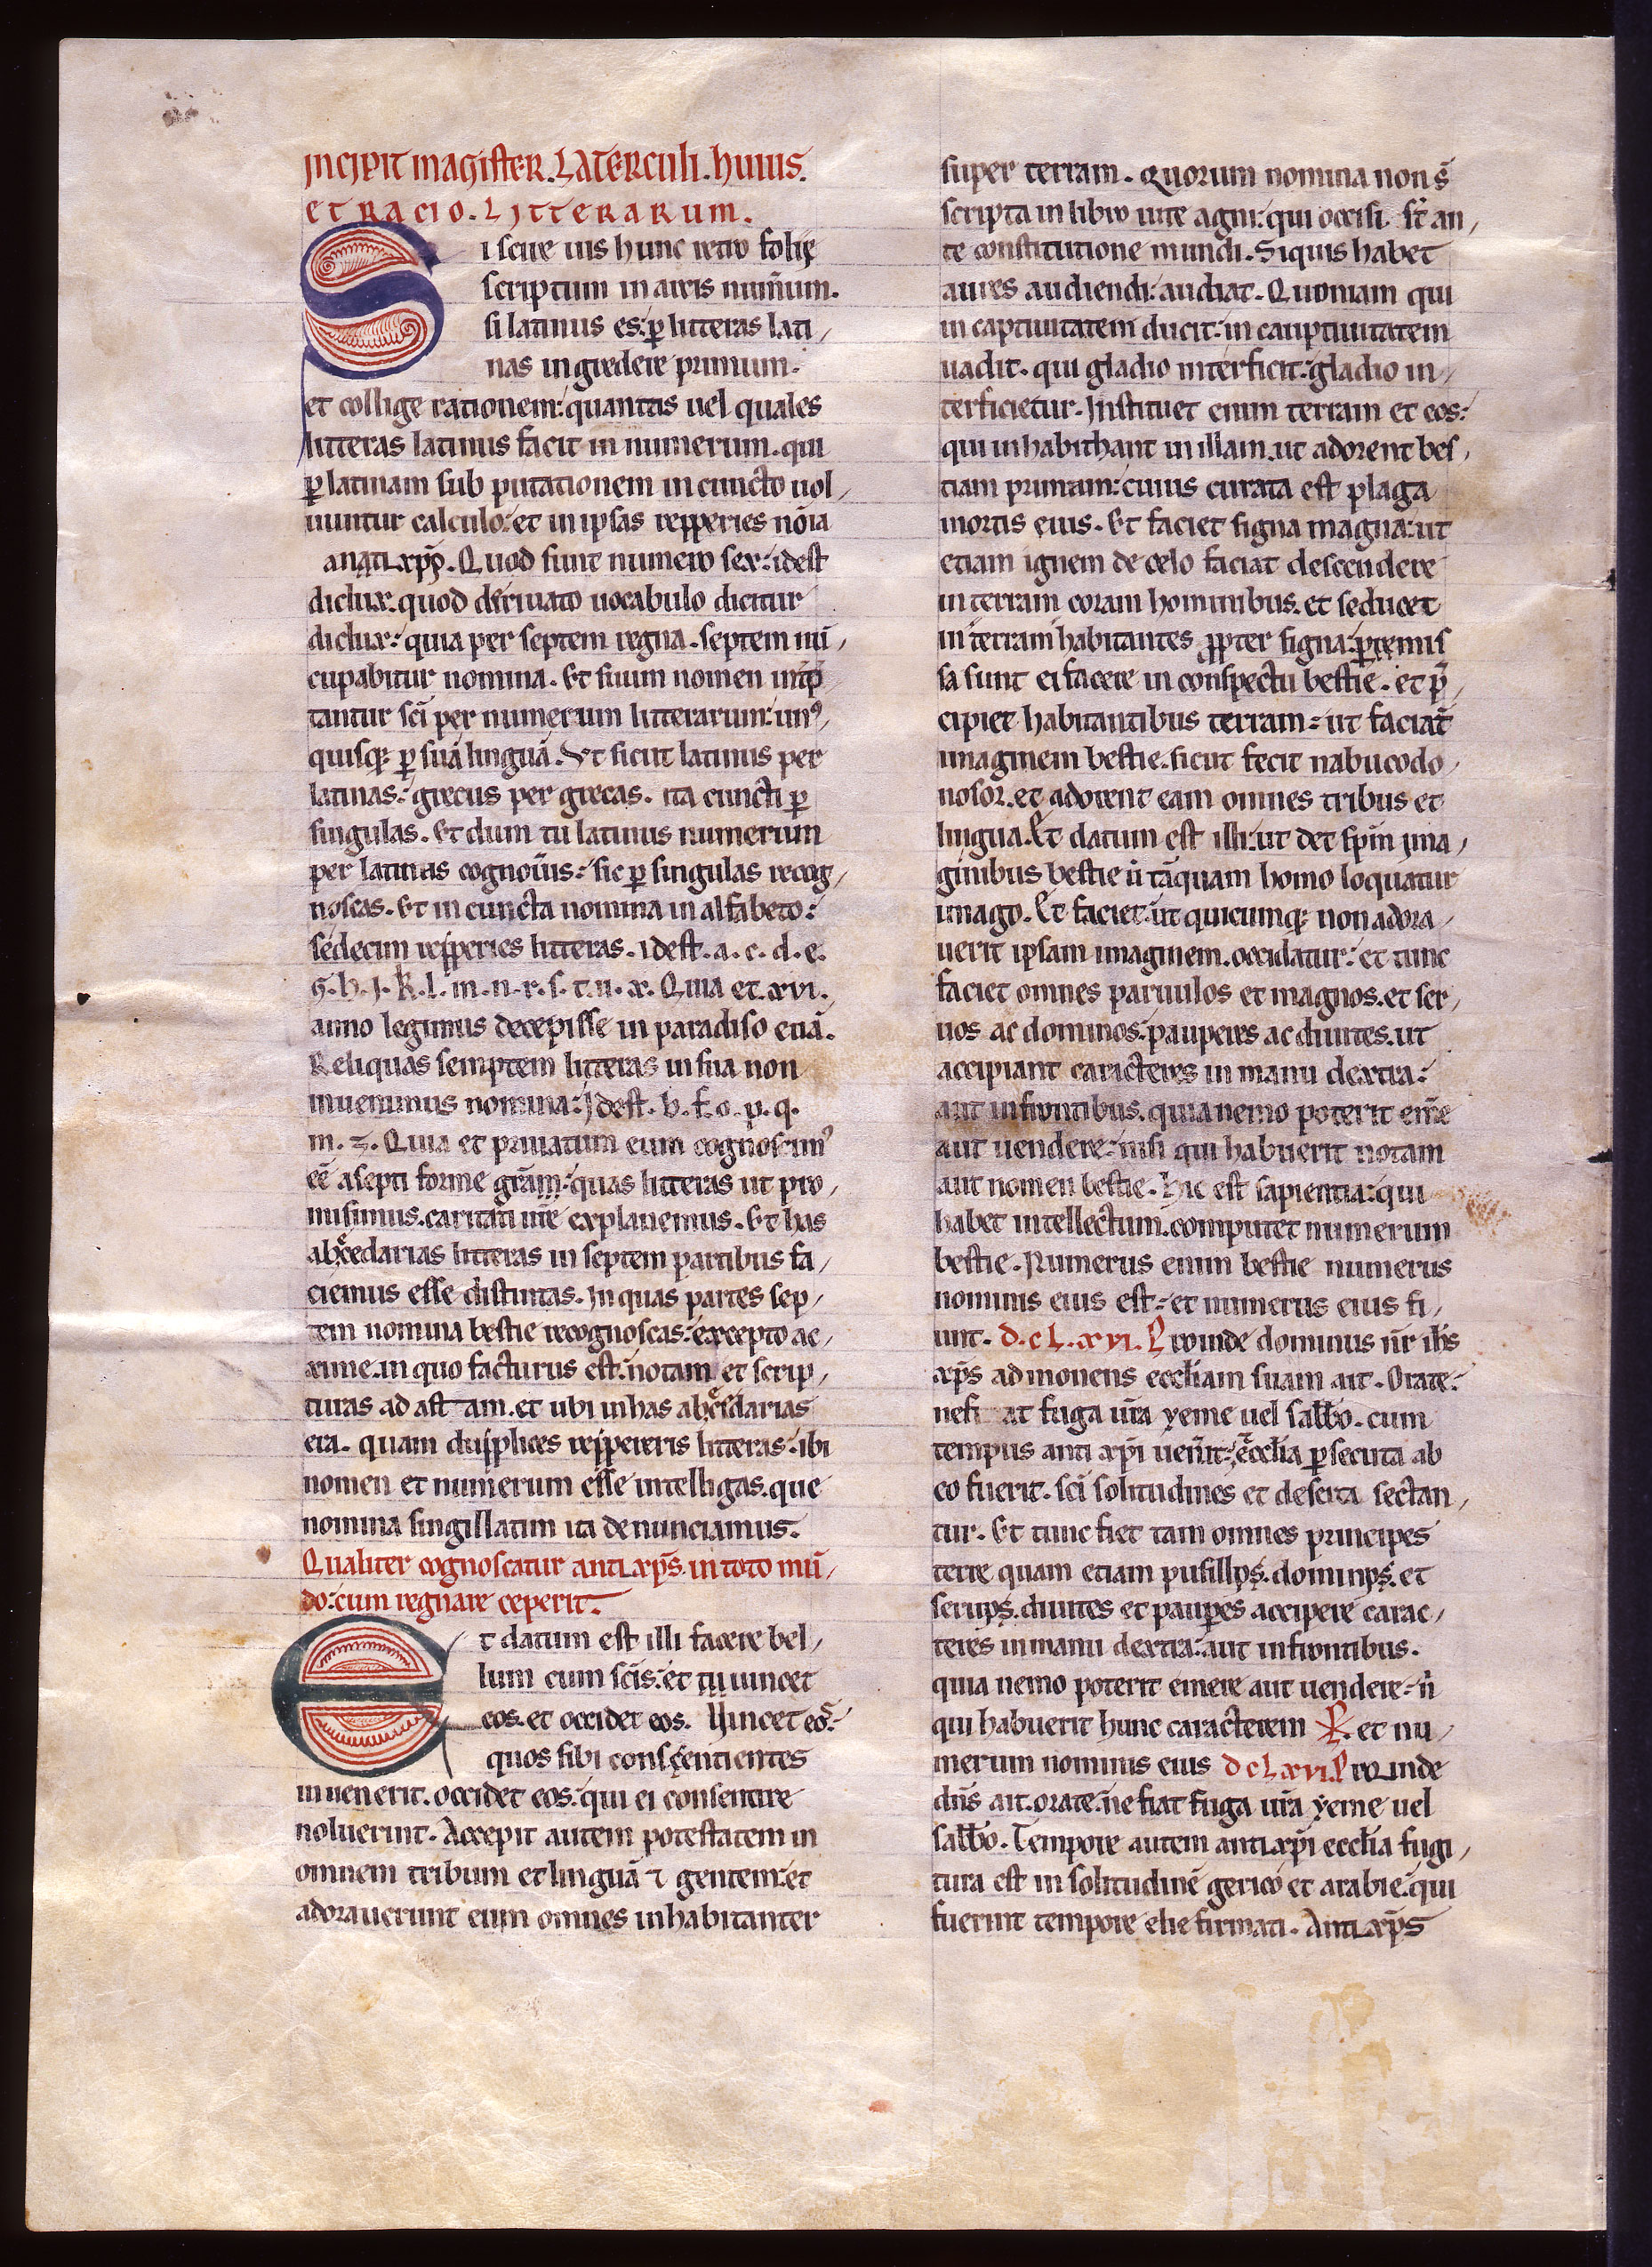 Incipit magister. Laterculi. huius.
et racio. litterarum.
Si scire uis hunc retro folię
scriptum in arcis numĩum.
si latinus es: ꝑ litteras lati,
nas ingredere primum.
et collige rationem: quantas uel quales
litteras latinus facit in numerum. qui
ꝑ latinam sub putationem in cuncto uol,
uuntur calculo: et in ipsas repperies nõia
antixp̃i. Quod sunt numero sex: idest
diclux. quod deriuato uocabulo dicitur
diclux: quia per septem regna. septem nũ,
cupabitur nomina. Et suum nomen
tantur sc̃i per numerum litterarum: un⁹,
quisq; ꝑ suã linguã. Vt sicut latinus per
latinas: grecus per grecas. ita cuncti ꝑ
singulas. Et dum tu latinus numerum
per latinas cognoũis: sic ꝑ singulas recog,
noscas. Et in cuncta nomina in alfabeto:
sedecim repperies litteras. idest. a. c. d. e.
G. h. J. k. l. m. n. r. s. t. u. x. Quia et. xvi.
anno legimus decepisse in paradiso euã.
Reliquas semptem litteras in sua non
inuenimus nomina: Idest. b. f. o. p. q.
m. z. Quia et priuatum eum cognoscim⁹
eẽ a septi forme grãm: quas litteras ut pro,
misimus. caritati ur̃e explanemus. Et has
abcedarias litteras in septem partibus fa,
ciemus esse distintas. In quas partes sep,
tem nomina bestie recognoscas: excepto ac,
xime. in quo facturus est: notam et scrip,
turas ad astam. et ubi in has abcedarias
era. quam dupplices reppereris litteras: ibi
nomen et numerum esse intelligas. que
nomina singillatim ita denunciamus.
Qualiter cognoscatur antixp̃s. in toto mũ,
do: cum regnare ceperit.
Et datum est illi facere bel,
lum cum sc̃is: et uincet
eos. et occidet eos. Uincet eos:
quos sibi consentientes
inuenerit. occidet eos: qui ei consentire
noluerint. Accepit autem potestatem in
omnem tribum et linguã ⁊ gentem: et
adorauerunt eum omnes inhabitanter
super terram. Quorum nomina non s̃
scripta in libro uite agni: qui occisi st̃ an,
te constitutione mundi. Siquis habet
aures audiendi: audiat. Quoniam qui
in captiuitatem ducit: in cauptiuitatem
uadit. qui gladio interficit: gladio in,
terficietur. Instituet enim terram et eos:
qui inhabithant in illam. ut adorent bes,
tiam primam: cuius curata est plaga
mortis eius. Et faciet signa magna: ut
etiam ignem de celo faciat descendere
in terram coram hominibus. et seducet
in terram habitantes ꝓpter signa: ꝑremis
sa sunt ei facere in conspectu bestie. et p̃,
cipiet habitantibus terram: ut faciat
imaginem bestie. sicut fecit nabucodo,
nosor. et adorent eam omnes tribus et
lingua. Et datum est illi: ut det sp̃m ima,
ginibus bestie ũ tãquam homo loquatur
imago. Et faciet: ut quicumq; non adora,
uerit ipsam imaginem. occidatur: et tunc
faciet omnes paruulos et magnos. et ser,
uos ac dominos: pauperes ac diuites. ut
accipiant caracteres in manu dextra:
aut in frontibus. quia nemo poterit em̃e
aut uendere: nisi qui habuerit notam
aut nomen bestie. Hic est sapientia: qui
habet intellectum. computet numerum
bestie. Numerus enim bestie numerus
nominis eius est: et numerus eius fi,
unt. d.c L.xvi. Proinde dominus nr̃ ih̃s
xp̃s admonens eccl̃iam suam ait. Orate:
nefi at fuga ur̃a yeme uel sabb̃o. cum
tempus anti xp̃i uen̾it: eccl̃ia ꝑsecuta ab
eo fuerit. sc̃i solitudines et deserta sectan,
tur. Et tunc fiet tam omnes principes
terre quam etiam pusillys. dominys. et
seruys. diuites et pauꝑes accipere carac,
teres in manu dextra: aut in frontibus.
quia nemo poterit emere aut uendere: ñ
qui habuerit hunc caracterem ☧. et nu,
merum nominis eius d c L xvi. Proinde
dñs ait. orate: ne fiat fuga ur̃a yeme uel
sabb̃o. Tempore autem antixp̃i eccl̃ia fugi,
tura est in solitudinẽ gerico et arabie: qui
fuerunt tempore elie firmati. Antixp̃s